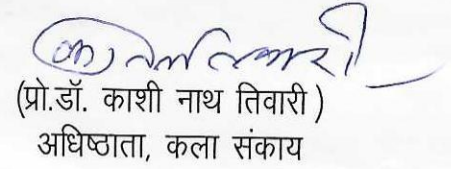 (प्रो.डॉ. काशी नाथ तिवारी )
अधिष्ठाता, कला संकाय